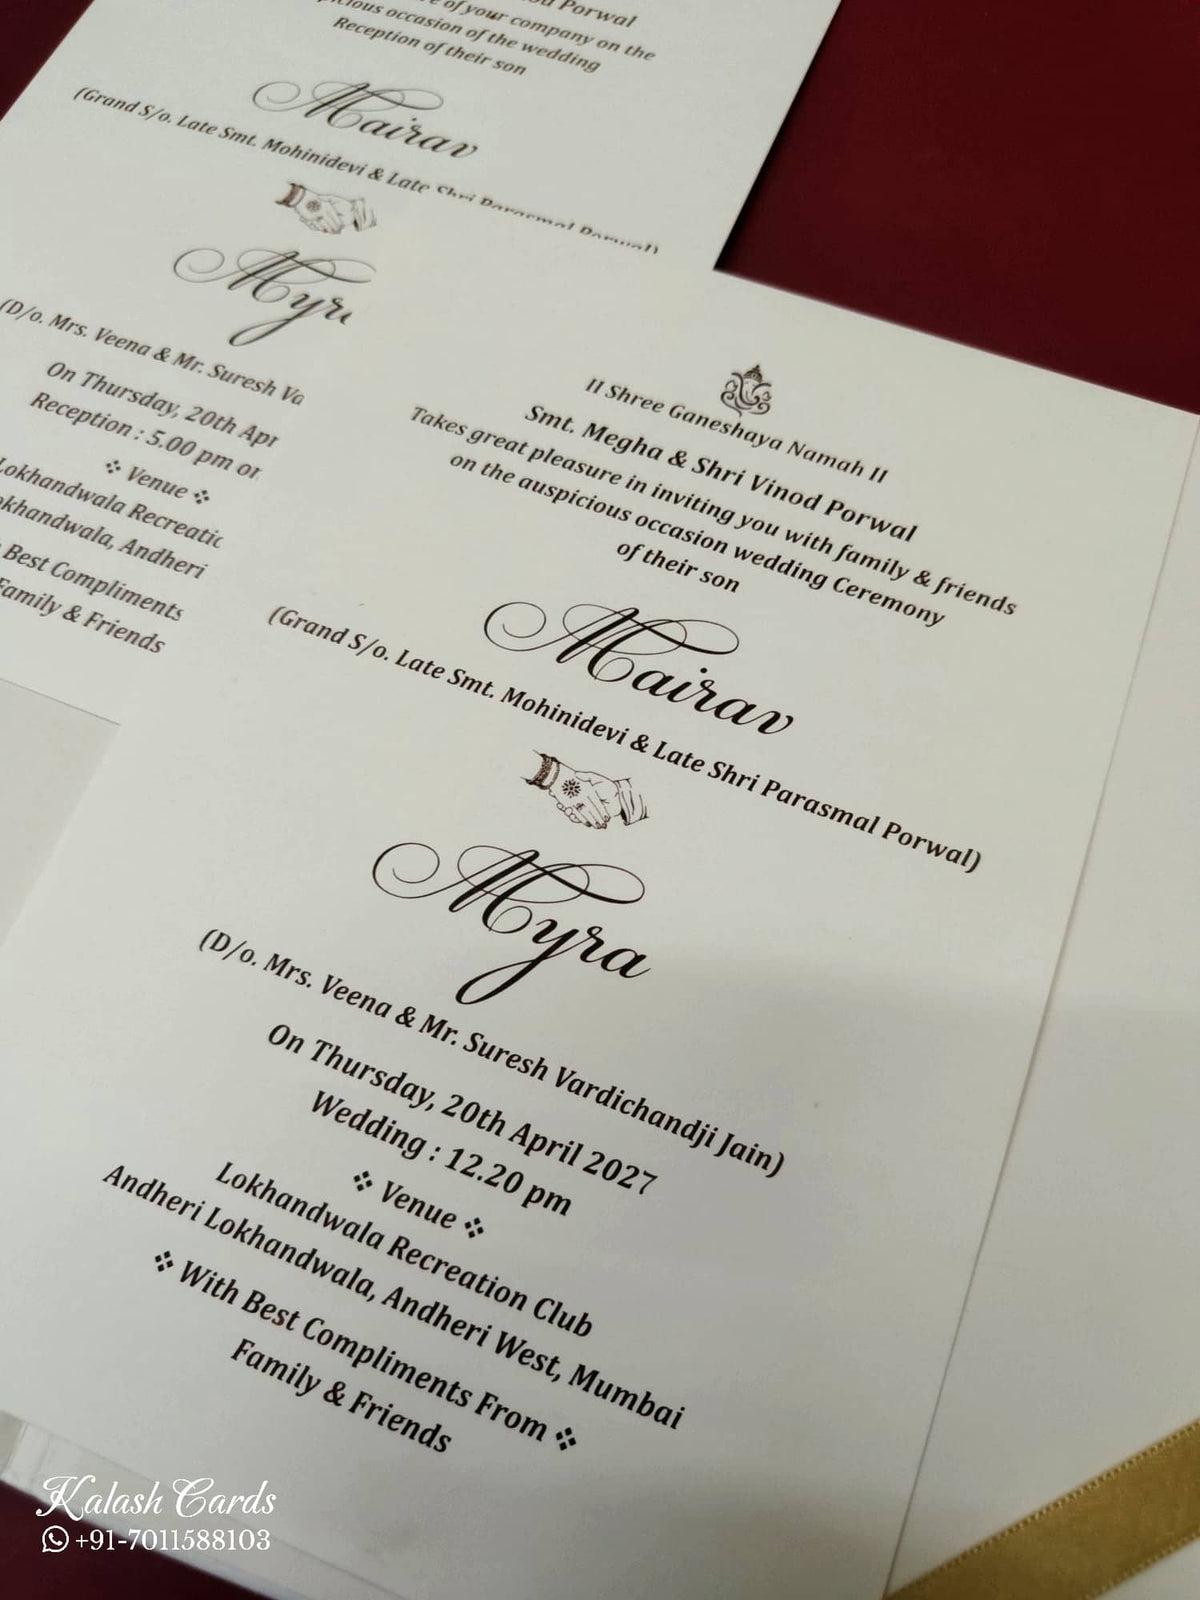 ou Porwal
e of your company on the
picious occasion of the wedding
Reception of their son
Mairav
(Grand S/o. Late Smt. Mohinidevi & Late Shri Parasmal Porwal)
Myr
(D/o. Mrs. Veena & Mr. Suresh Va
On Thursday, 20th Apr
Reception : 5.00 pm on
Venue
Lokhandwala Recreatic
okhandwala, Andheri
Best Compliments
Family & Friends
II Shree Ganeshaya Namah II
Smt. Megha & Shri Vinod Porwal
Takes great pleasure in inviting you with family & friends
on the auspicious occasion wedding Ceremony
of their son
Mairav
(Grand S/o. Late Smt. Mohinidevi & Late Shri Parasmal Porwal)
Myra
(D/o. Mrs. Veena & Mr. Suresh Vardichandji Jain)
On Thursday, 20th April 2027
Wedding : 12.20 pm
❖ Venue ❖
Lokhandwala Recreation Club
Andheri Lokhandwala, Andheri West, Mumbai
❖ With Best Compliments From ❖
Family & Friends
Kalash Cards
+91-7011588103